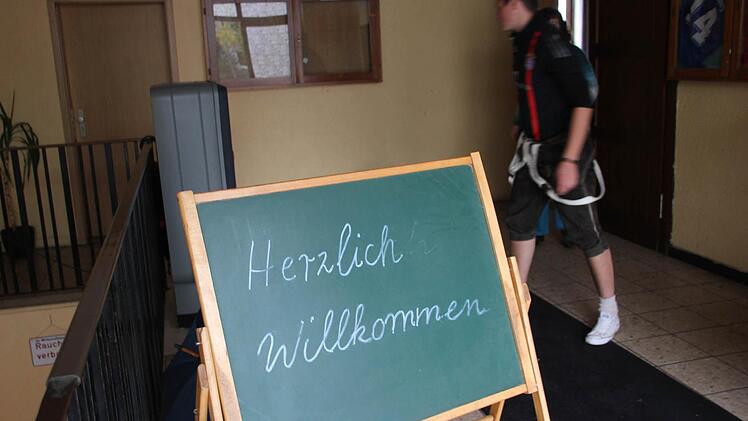 Herzlich
Willkommen
Rauch
verb